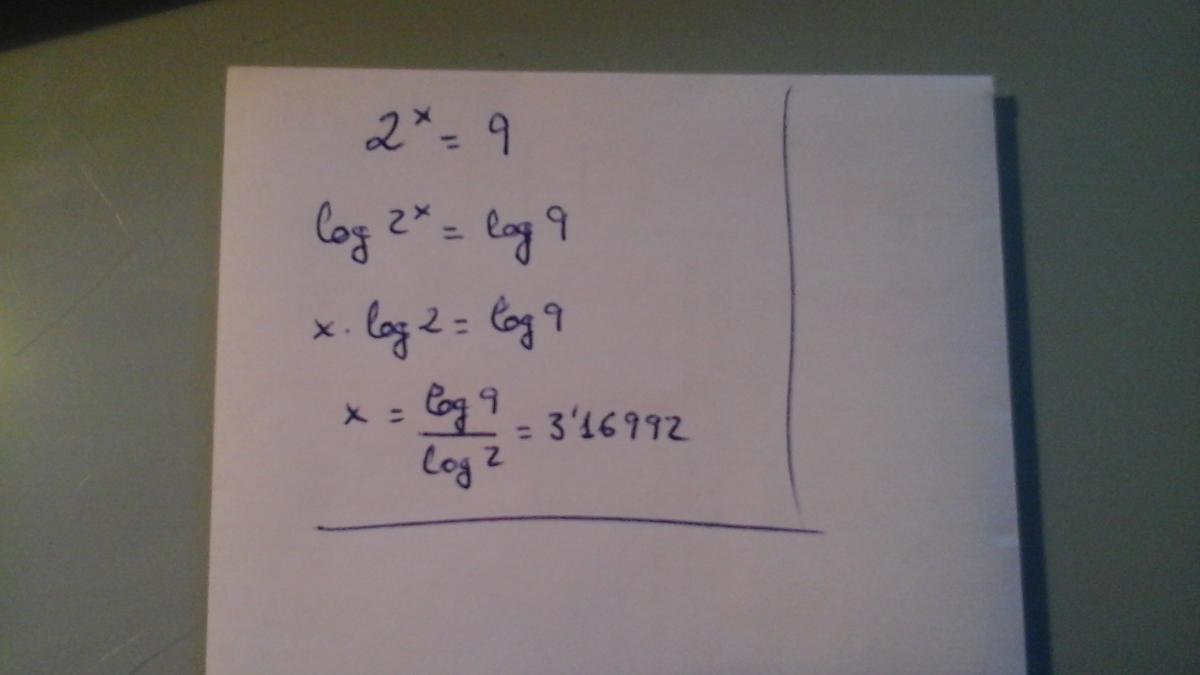 2ˣ = 9
log 2ˣ = log 9
x · log 2 = log 9
x = log 9 / log 2 = 3'16992